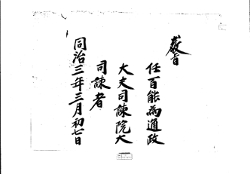 教旨
任百能為通政
大夫司諫院大
司諫者
同治三年三月初七日